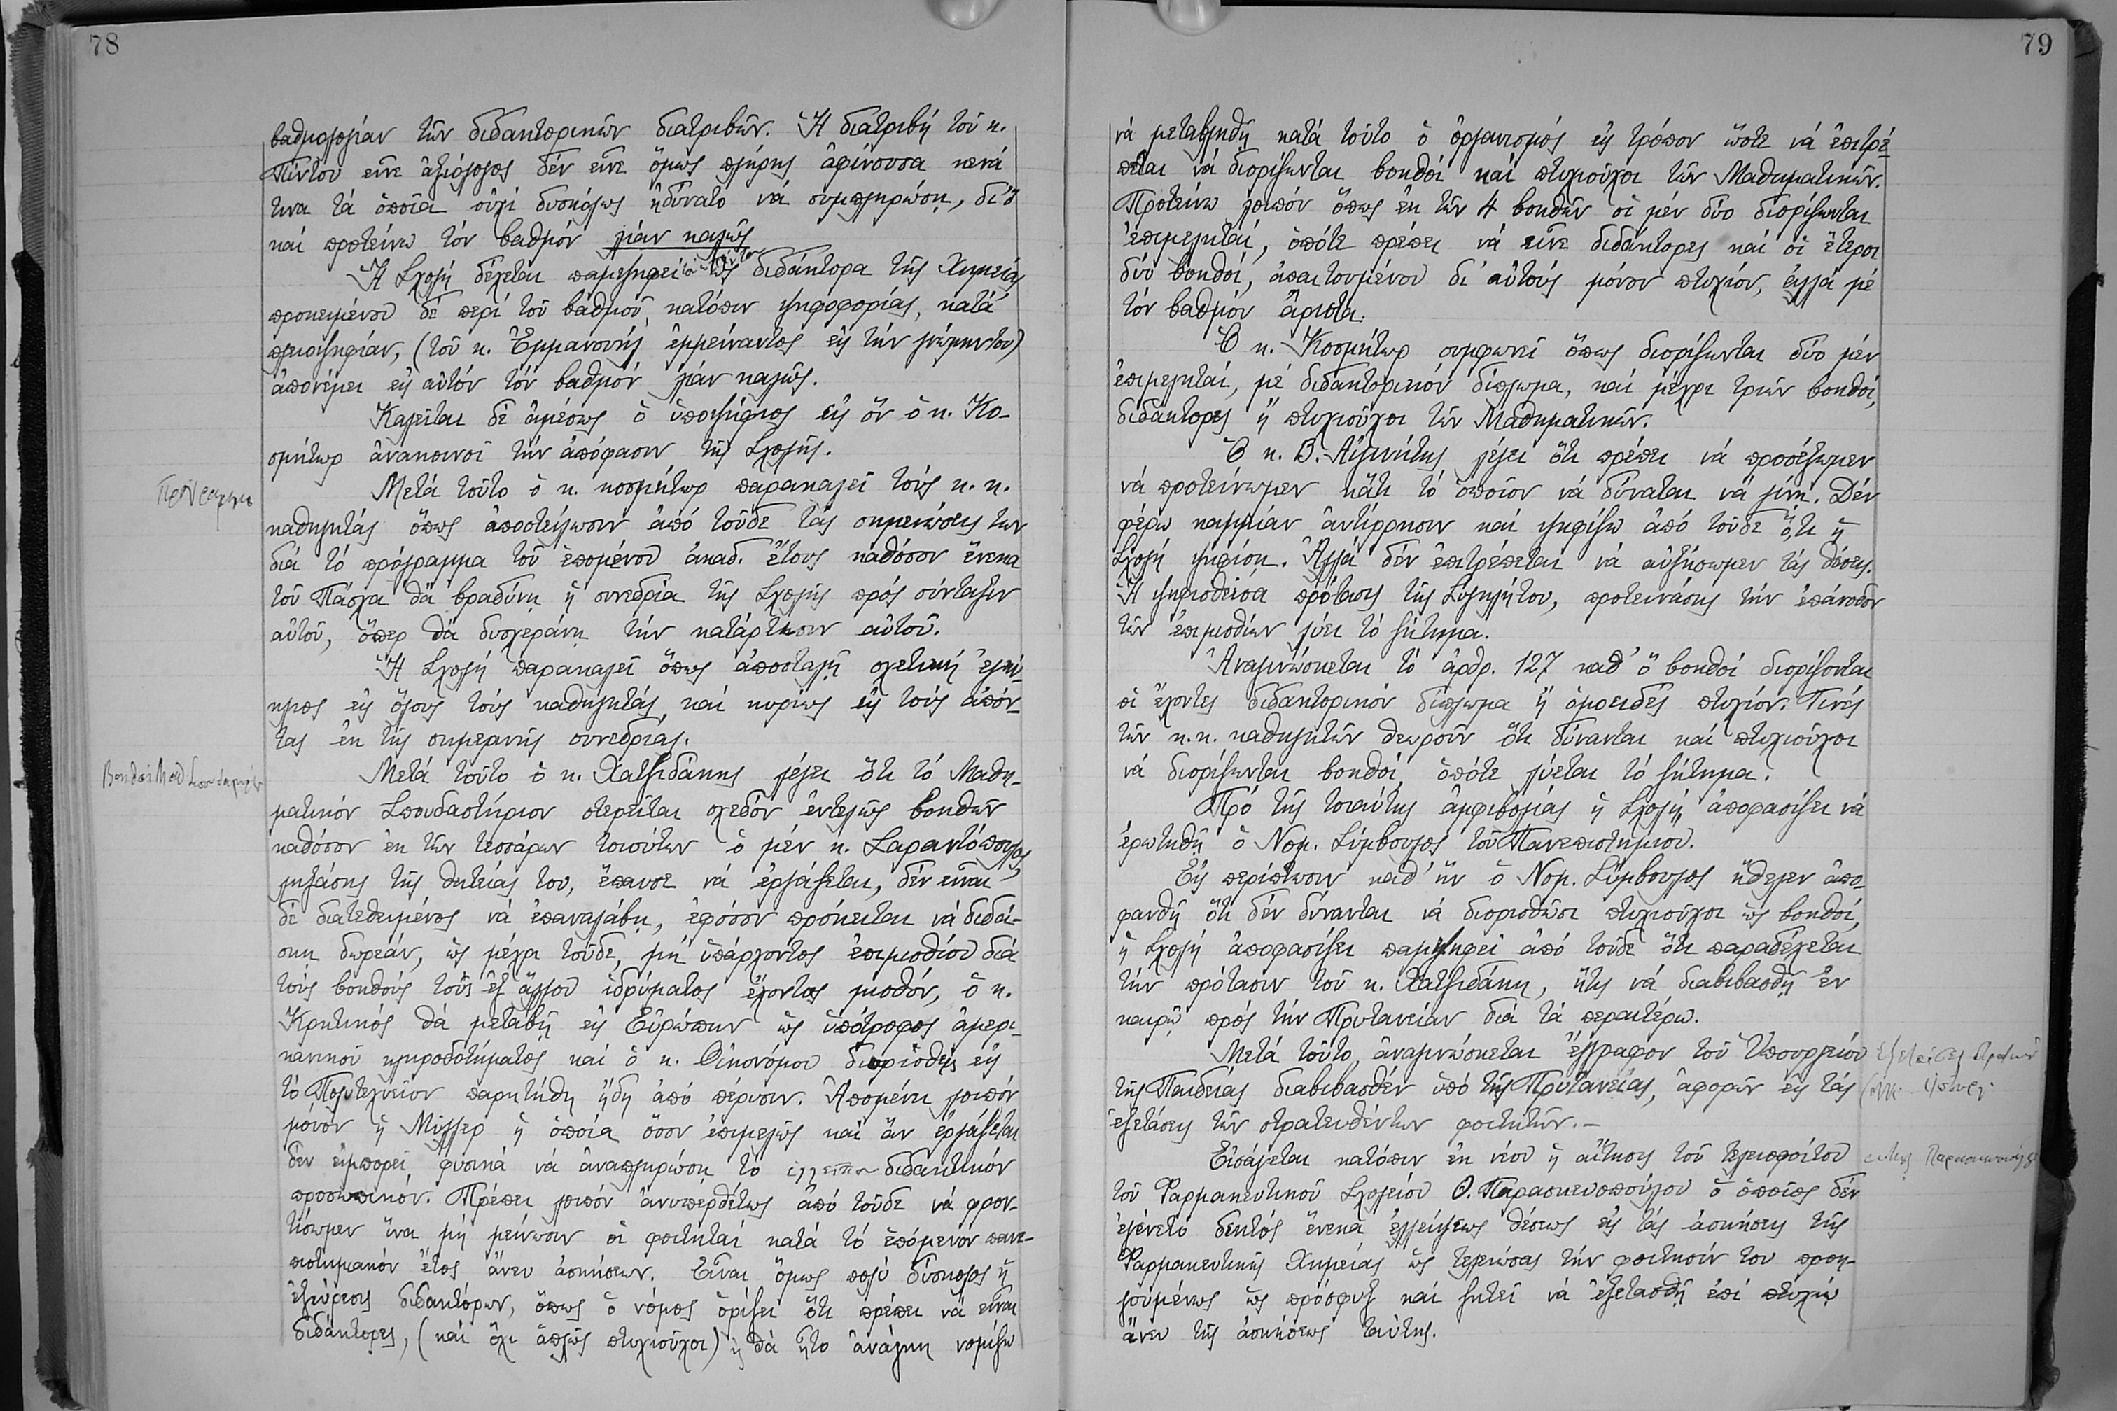 78
βαθμολογίαν τῶν διδακτορικῶν διατριβῶν. Ἡ διατριβή τοῦ κ.
Πίντου εἶνε ἀξιόλογος δέν εἶνε ὅμως πλήρης ἀφίνουσα κενά
τινα τά ὁποῖα οὐχί δυσκόλως ἠδύνατο νά συμπληρώσῃ, δι' ὅ
καί προτείνω τόν βαθμόν λίαν καλῶς
Ἡ Σχολή δέχεται παμψηφεί ὡς διδάκτορα τῆς Χημείας
προκειμένου δέ περί τοῦ βαθμοῦ, κατόπιν ψηφοφορίας, κατά
πλειοψηφίαν, (τοῦ κ. Ἐμμανουήλ ἐμμείναντος εἰς τήν γνώμην του)
ἀπονέμει εἰς αὐτόν τόν βαθμόν λίαν καλῶς.
Καλεῖται δέ ἀμέσως ὁ ὑποψήφιος εἰς ὅν ὁ κ. Κο-
σμήτωρ ἀνακοινοῖ τήν ἀπόφασιν τῆς Σχολῆς.
Πρόγραμμα
Μετά τοῦτο ὁ κ. κοσμήτωρ παρακαλεῖ τούς κ.κ.
καθηγητάς ὅπως ἀποστείλωσιν ἀπό τοῦδε τάς σημειώσεις των
διά τό πρόγραμμα τοῦ ἑπομένου ἀκαδ. ἔτους καθόσον ἕνεκα
τοῦ Πάσχα θά βραδύνῃ ἡ συνεδρία τῆς Σχολῆς πρός σύνταξιν
αὐτοῦ, ὅπερ θά δυσχεράνῃ τήν κατάρτισιν αὐτοῦ.
Ἡ Σχολή παρακαλεῖ ὅπως ἀποσταλῇ σχετική ἐγκύ-
κλιος εἰς ὅλους τούς καθηγητάς καί κυρίως εἰς τούς ἀπόν-
τας ἐκ τῆς σημερινῆς συνεδρίας.
Βοηθοί Μαθ Σπουδαστηρίου
Μετά τοῦτο ὁ κ. Χατζιδάκης λέγει ὅτι τό Μαθη-
ματικόν Σπουδαστήριον στερεῖται σχεδόν ἐντελῶς βοηθῶν
καθόσον ἐκ τῶν τεσσάρων τοιούτων ὁ μέν κ. Σαραντόπουλος
ληξάσης τῆς θητείας του, ἔπαυσε νά ἐργάζεται, δέν εἶναι
δέ διατεθειμένος νά ἐπαναλάβῃ, ἐφόσον πρόκειται νά διδά-
σκῃ δωρεάν, ὡς μέχρι τοῦδε, μή ὑπάρχοντος ἐπιμισθίου διά
τούς βοηθούς τούς ἐξ ἄλλου ἱδρύματος ἔχοντας μισθόν, ὁ κ.
Κρητικός θά μεταβῇ εἰς Εὐρώπην ὡς ὑπότροφος ἀμερι-
κανικοῦ κληροδοτήματος καί ὁ κ. Οἰκονόμου διορισθείς εἰς
τό Πολυτεχνεῖον παρητήθη ἤδη ἀπό πέρυσιν. Ἀπομένει λοιπόν
μόνον ἡ Μύλλερ ἡ ὁποία ὅσον ἐπιμελῶς καί ἄν ἐργάζεται
δέν ἐμπορεῖ φυσικά νά ἀναπληρώσῃ τό ἐλλεῖπον διδακτικόν
προσωπικόν. Πρέπει λοιπόν ἀνυπερθέτως ἀπό τοῦδε νά φρον-
τίσωμεν ἵνα μή μείνωσιν οἱ φοιτηταί κατά τό ἑπόμενον πανε-
πιστημιακόν ἔτος ἄνευ ἀσκήσεων. Εἶναι ὅμως πολύ δύσκολος ἡ
ἐξεύρεσις διδακτόρων, ὅπως ὁ νόμος ὁρίζει ὅτι πρέπει νά εἶναι
διδάκτορες, (καί ὄχι ἁπλῶς πτυχιοῦχοι) θά ἦτο ἀνάγκη νομίζω
79
νά μεταβληθῇ κατά τοῦτο ὁ ὀργανισμός εἰς τρόπον ὥστε νά ἐπιτρέ-
πεται νά διορίζωνται βοηθοί καί πτυχιοῦχοι τῶν Μαθηματικῶν.
Προτείνω λοιπόν ὅπως ἐκ τῶν 4 βοηθῶν οἱ μέν δύο διορίζωνται
ἐπιμεληταί, ὁπότε πρέπει νά εἶνε διδάκτορες καί οἱ ἕτεροι
δύο βοηθοί, ἀπαιτουμένου δι' αὐτούς μόνον πτυχίου, ἀλλά μέ
τόν βαθμόν ἄριστα.
Ὁ κ. Κοσμήτωρ συμφωνεῖ ὅπως διορίζωνται δύο μέν
ἐπιμεληταί, μέ διδακτορικόν δίπλωμα, καί μέχρι τριῶν βοηθοί,
διδάκτορες ἤ πτυχιοῦχοι τῶν Μαθηματικῶν.
Ὁ κ. Β. Αἰγινήτης λέγει ὅτι πρέπει νά προσέξωμεν
νά προτείνωμεν κάτι τό ὁποῖον νά δύναται νά γίνῃ. Δέν
φέρω καμμίαν ἀντίρρησιν καί ψηφίζω ἀπό τοῦδε ὅ,τι ἡ
Σχολή ψηφίσῃ. Ἀλλά δέν ἐπιτρέπεται νά αὐξήσωμεν τάς θέσεις.
Ἡ ψηφισθεῖσα πρότασις τῆς Συγκλήτου, προτεινάσης τήν ἐπάνοδον
τῶν ἐπιμισθίων λύει τό ζήτημα.
Ἀναγινώσκεται τό ἄρθρ. 127 καθ' ὅ βοηθοί διορίζονται
οἱ ἔχοντες διδακτορικόν δίπλωμα ἤ ὁμοειδές πτυχίον. Τινές
τῶν κ.κ. καθηγητῶν θεωροῦν ὅτι δύνανται καί πτυχιοῦχοι
νά διορίζωνται βοηθοί, ὁπότε λύεται τό ζήτημα.
Πρό τῆς τοιαύτης ἀμφιβολίας ἡ Σχολή ἀποφασίζει νά
ἐρωτηθῇ ὁ Νομ. Σύμβουλος τοῦ Πανεπιστημίου.
Εἰς περίπτωσιν καθ' ἥν ὁ Νομ. Σύμβουλος ἤθελεν ἀπο-
φανθῇ ὅτι δέν δύνανται νά διορισθῶσι πτυχιοῦχοι ὡς βοηθοί,
ἡ Σχολή ἀποφασίζει παμψηφεί ἀπό τοῦδε ὅτι παραδέχεται
τήν πρότασιν τοῦ κ. Χατζιδάκη, ἥτις νά διαβιβασθῇ ἐν
καιρῷ πρός τήν Πρυτανείαν διά τά περαιτέρω.
Μετά τοῦτο ἀναγινώσκεται ἔγγραφον τοῦ Ὑπουργείου
τῆς Παιδείας διαβιβασθέν ὑπό τῆς Πρυτανείας, ἀφορῶν εἰς τάς
ἐξετάσεις τῶν στρατευθέντων φοιτητῶν.-
Εἰσάγεται κατόπιν ἐκ νέου ἡ αἴτησις τοῦ τελειοφοίτου
τοῦ Φαρμακευτικοῦ Σχολείου Θ. Παρασκευοπούλου ὁ ὁποῖος δέν
ἐγένετο δεκτός ἕνεκα ἐλλείψεως θέσεως εἰς τάς ἀσκήσεις τῆς
Φαρμακευτικῆς Χημείας ὡς τελειώσας τήν φοίτησίν του προη-
γουμένως ὡς πρόσφυξ καί ζητεῖ νά ἐξετασθῇ ἐπί πτυχίῳ
ἄνευ τῆς ἀσκήσεως ταύτης.